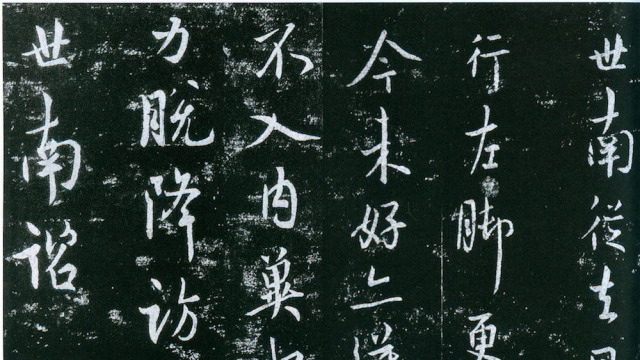 世南從去
行左脚更
今未好亦
不入内冀
力脱降訪
世南諮